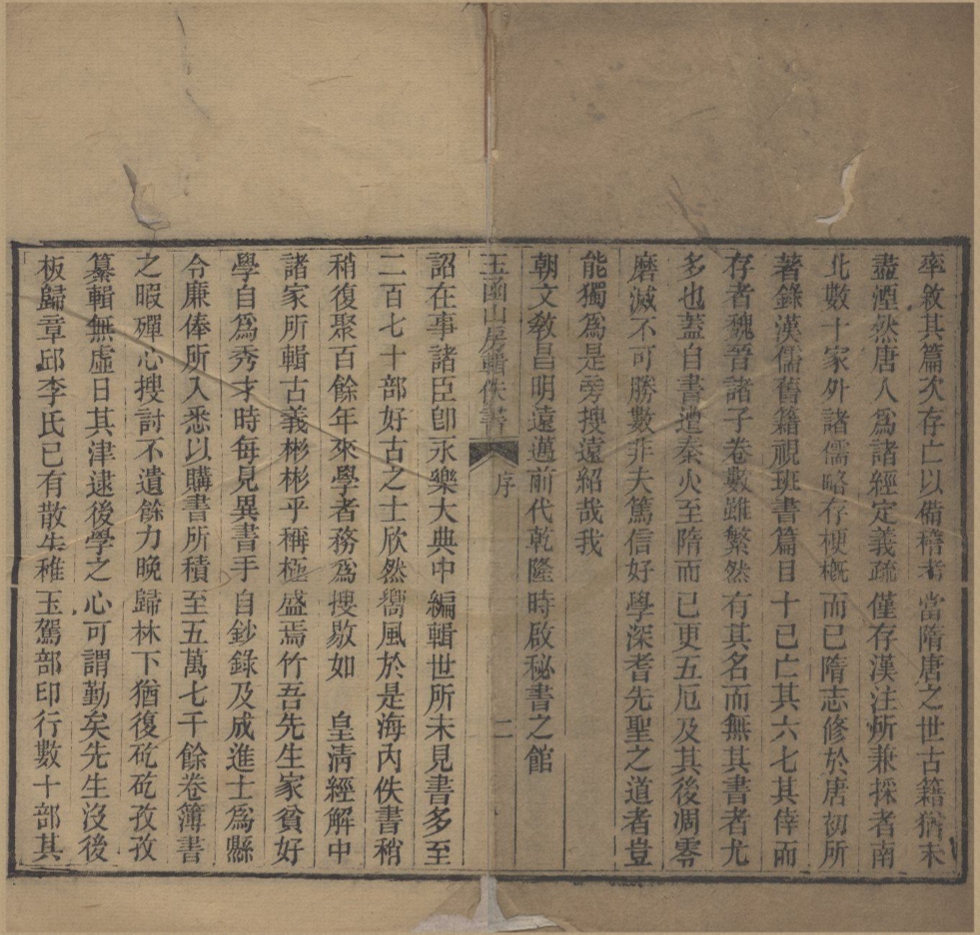 率敘其篇次存亡以備稽考當隋唐之世古籍猶未
盡湮然唐人爲諸經定義疏僅存漢注所兼採者南
北數十家外諸儒略存梗概而已隋志修於唐初所
著錄漢儒舊籍視班書篇目十已亡其六七其倖而
存者魏晉諸子卷數雖繁然有其名而無其書者尤
多也蓋自書遭秦火至隋而已更五厄及其後凋零
磨滅不可勝數非夫篤信好學深耆先聖之道者豈
能獨爲是旁搜遠紹哉我
朝文敎昌明遠邁前代乾隆時啟秘書之館
玉函山房輯佚書 序 二
詔在事諸臣卽永樂大典中編輯世所未見書多至
二百七十部好古之士欣然嚮風於是海內佚書稍
稍復聚百餘年來學者務爲搜敭如 皇淸經解中
諸家所輯古義彬彬乎稱極盛焉竹吾先生家貧好
學自爲秀才時每見異書手自鈔錄及成進士爲縣
令廉俸所入悉以購書所積至五萬七千餘卷簿書
之暇殫心搜討不遺餘力晚歸林下猶復矻矻孜孜
纂輯無虛日其津逮後學之心可謂勤矣先生沒後
板歸章邱李氏已有散失稚玉駕部印行數十部其